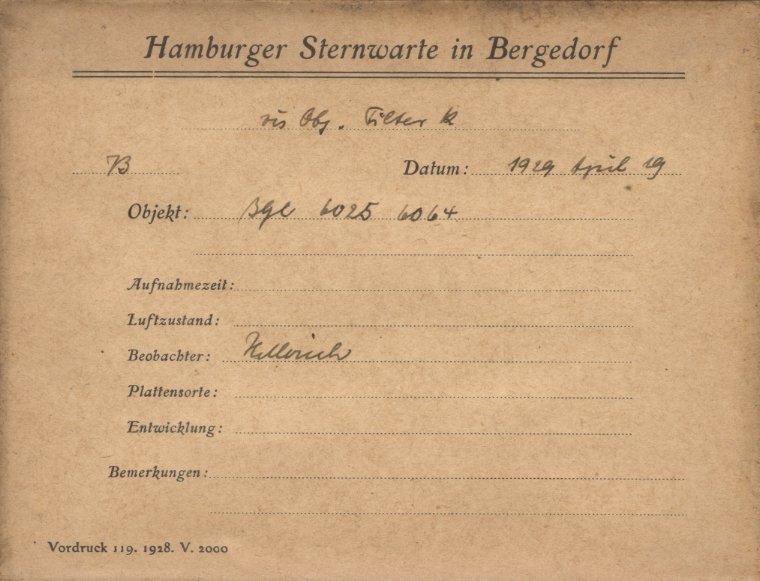 Hamburger Sternwarte in Bergedorf
vis Obj. Filter k
B Datum: 1929 April 19
Objekt: Bgl 6025 6064
Aufnahmezeit:
Luftzustand:
Beobachter:
Plattensorte:
Entwicklung:
Bemerkungen:
Vordruck 119. 1928. V. 2000